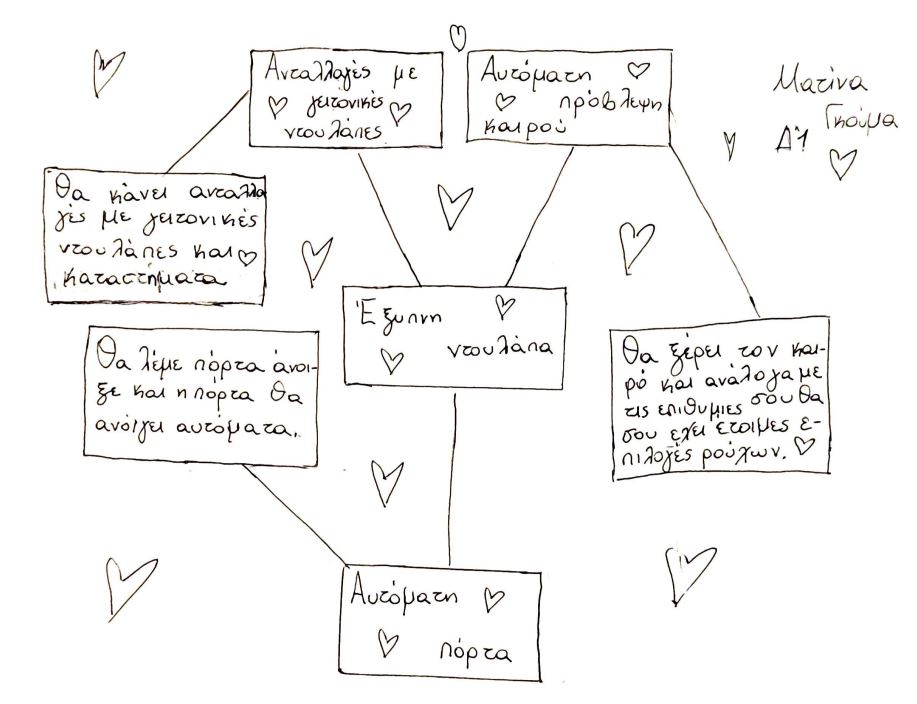 Ανταλλαγές με
γειτονικές
ντουλάπες
Αυτόματη
πρόβλεψη
καιρού
Ματίνα
Γκούμα
Δ'1
Θα κάνει ανταλλα
γές με γειτονικές
ντουλάπες και
καταστήματα
Έξυπνη
ντουλάπα
Θα λέμε πόρτα άνοι-
ξε και η πόρτα θα
ανοίγει αυτόματα.
Θα ξέρει τον και-
ρό και ανάλογα με
τις επιθυμίες σου θα
σου έχει έτοιμες ε-
πιλογές ρούχων.
Αυτόματη
πόρτα